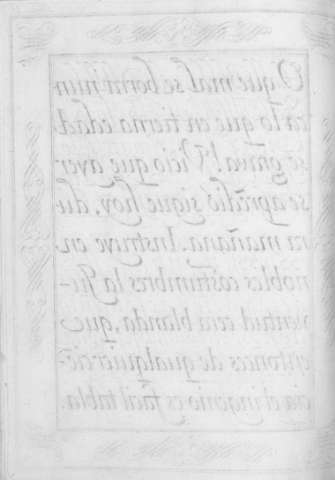 O que mal se borra nun
ca lo que en tierna edad
se graua! Vicio que ayer
se aprēdió sigue hoy, du
ra mañana. Instruye en
nobles costumbres la Ju-
ventud cera blanda, que
entonces de qualquier ciē-
cia el ingenio es facil tabla.